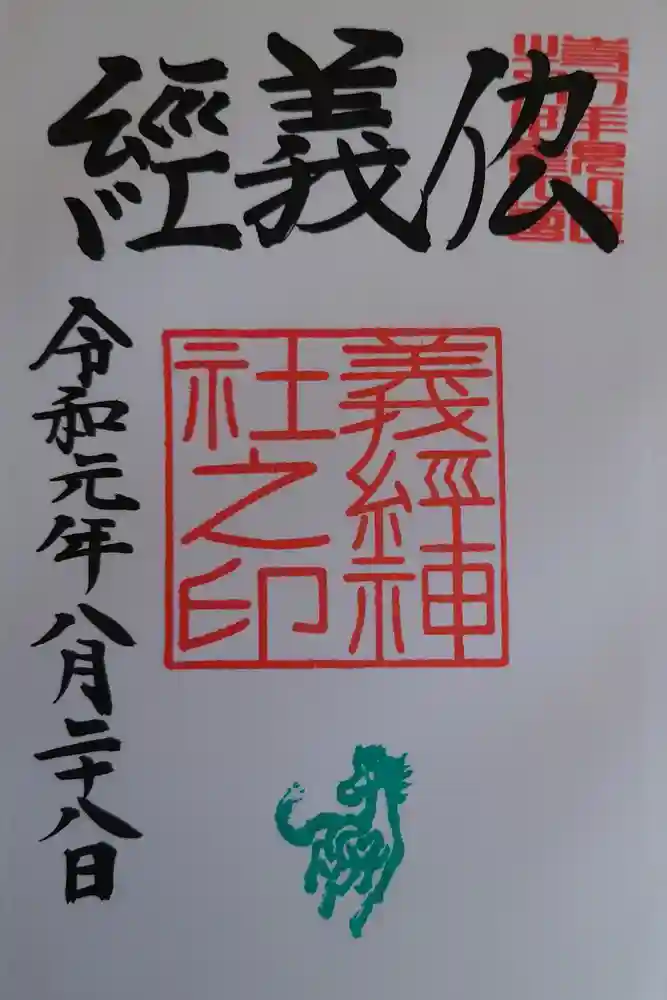 義經
義經神
社之印
令和元年八月二十八日